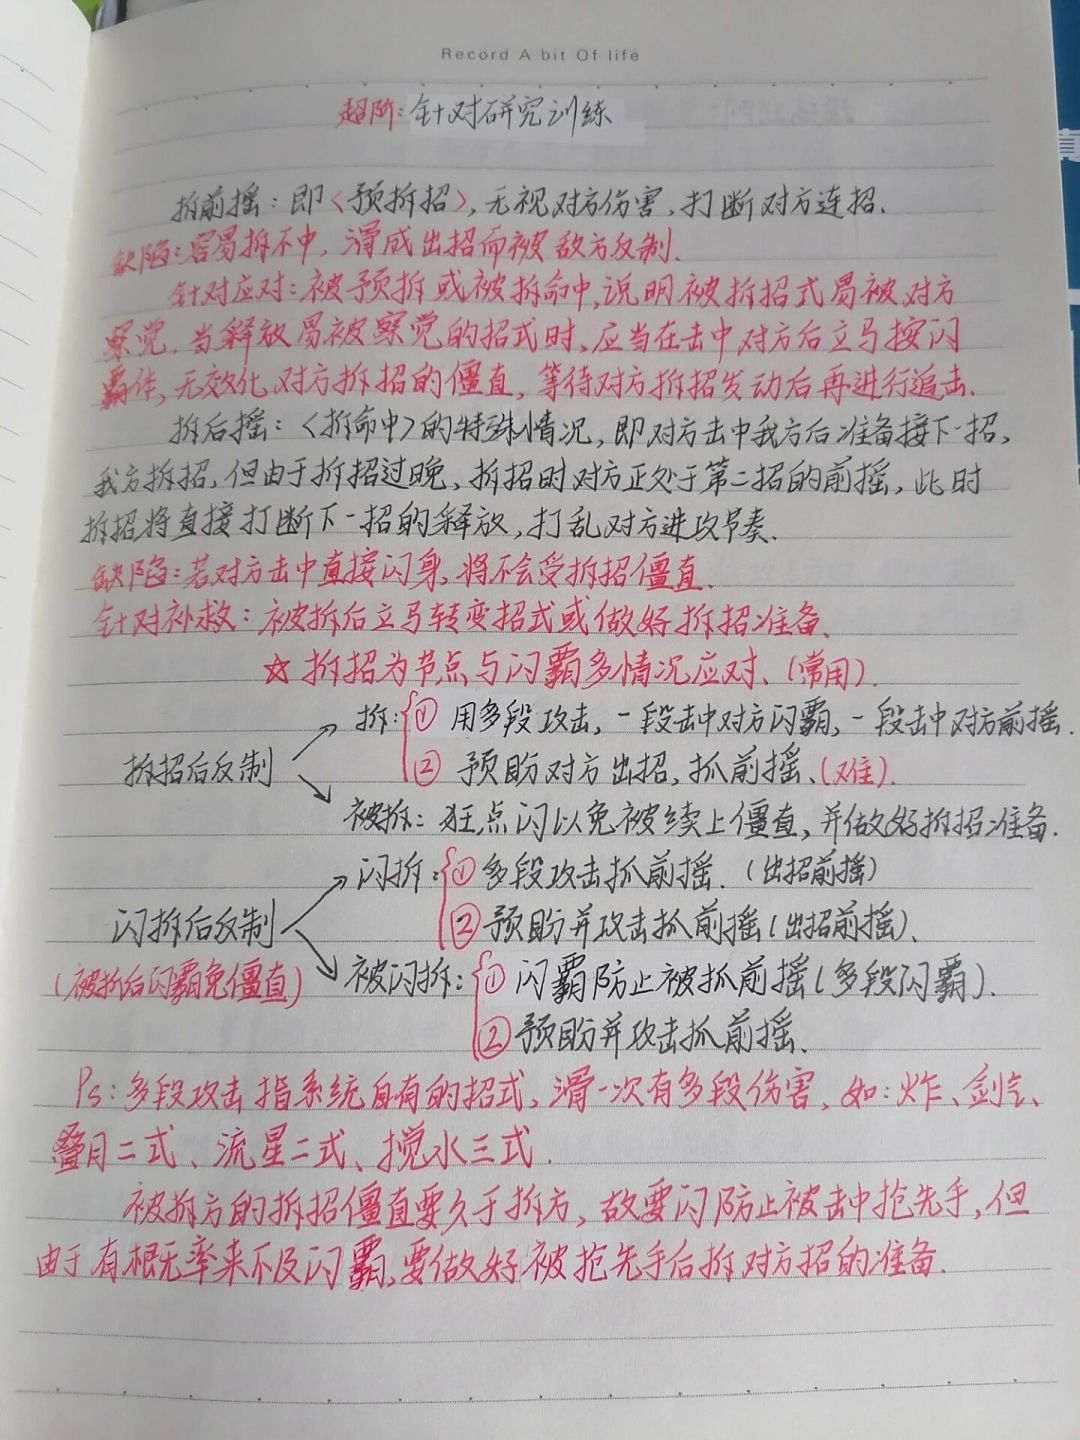 Record A bit Of life
超阶:针对研究训练
拆前摇:即〈预拆招〉,无视对方伤害,打断对方连招.
缺陷:容易拆不中,滑成出招而被敌方反制.
针对应对:被预拆或被拆命中,说明被拆招式易被对方
察觉.当释放易被察觉的招式时,应当在击中对方后立马按闪
霸体,无效化对方拆招的僵直,等待对方拆招发动后再进行追击.
拆后摇:〈拆命中〉的特殊情况,即对方击中我方后准备接下一招,
我方拆招,但由于拆招过晚,拆招时对方正处于第二招的前摇,此时
拆招将直接打断下一招的释放,打乱对方进攻节奏.
缺陷:若对方击中直接闪身,将不会受拆招僵直.
针对补救:被拆后立马转变招式或做好拆招准备.
☆拆招为节点与闪霸多情况应对、(常用).
拆:①用多段攻击,一段击中对方闪霸,一段击中对方前摇.
拆招后反制 ②预盼对方出招,抓前摇、(难).
被拆:狂点闪以免被续上僵直,并做好拆招准备.
闪拆:①多段攻击抓前摇.(出招前摇)
闪拆后反制 ②预盼并攻击抓前摇(出招前摇)、
(被拆后闪霸免僵直) 被闪拆:①闪霸防止被抓前摇(多段闪霸).
②预盼并攻击抓前摇、
Ps:多段攻击指系统自有的招式,滑一次有多段伤害,如:炸、剑气、
叠月二式、流星二式、搅水三式.
被拆方的拆招僵直要久于拆方,故要闪防止被击中抢先手,但
由于有概率来不及闪霸,要做好被抢先手后拆对方招的准备.